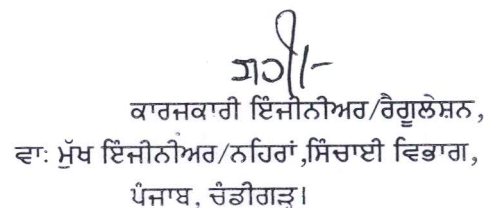 ਸਹੀ/-
ਕਾਰਜਕਾਰੀ ਇੰਜੀਨੀਅਰ/ਰੈਗੂਲੇਸ਼ਨ,
ਵਾ: ਮੁੱਖ ਇੰਜੀਨੀਅਰ/ਨਹਿਰਾਂ,ਸਿੰਚਾਈ ਵਿਭਾਗ,
ਪੰਜਾਬ, ਚੰਡੀਗੜ੍ਹ।